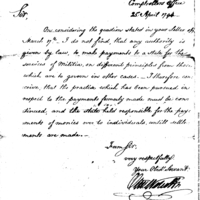 Comptrollers Office
25 April 1794
Sir,
On considering the question stated in your Letter of
March 17th, I do not find, that any authority is
given by law, to make payments to a State for the
services of Militia, on different principles from those
which are to govern in other cases. I therefore con-
ceive, that the practice which has been pursued in
respect to the payments formerly made must be con-
tinued, and the State held responsible for the Pay-
ments of monies due to individuals, until settle-
ments are made.
I am Sir,
very respectfully
Your Obed. Servant.